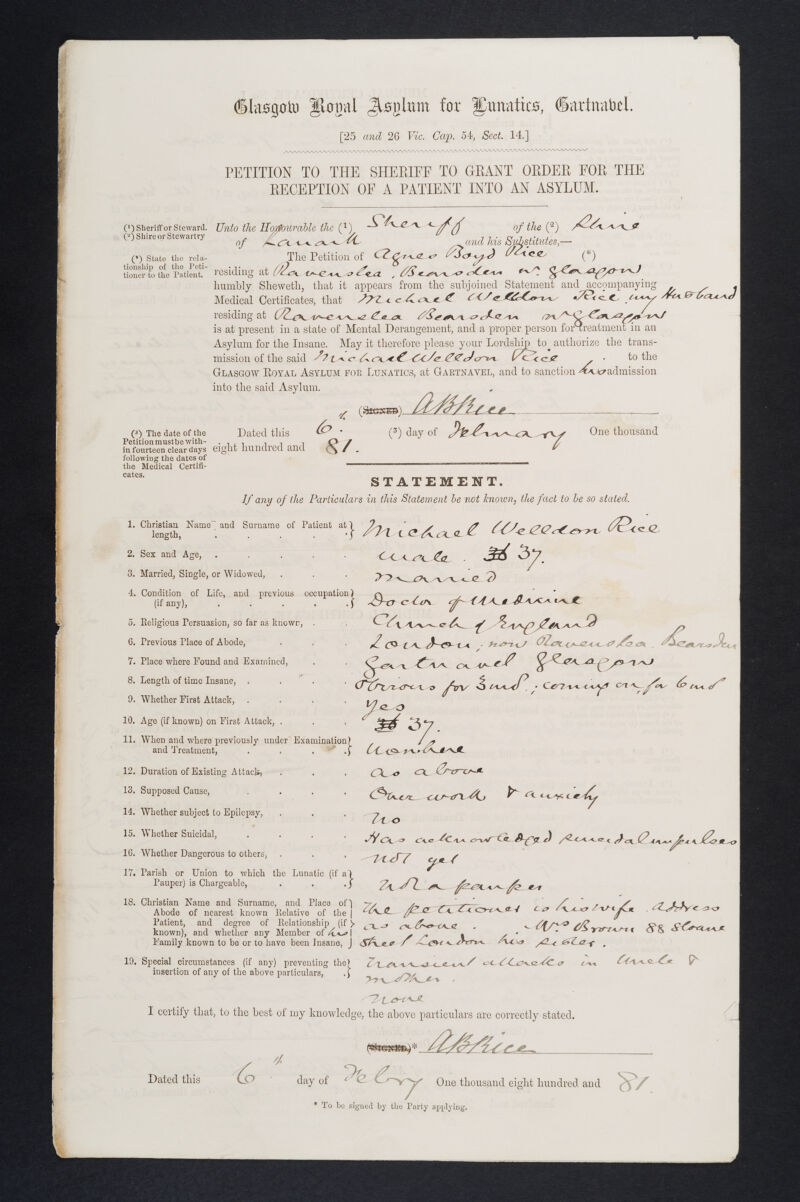 Glasgow Royal Asylum for Lunatics, Gartnabel.
[25 and 26 Vic. Cap. 54, Sect. 14.]
PETITION TO THE SHERIFF TO GRANT ORDER FOR THE
RECEPTION OF A PATIENT INTO AN ASYLUM.
(¹) Sheriff or Steward.
(²) Shire or Stewartry
(*) State the rela-
tionship of the Peti-
tioner to the Patient.
Unto the Honourable the (¹) Sheriff of the (²) Shire
of Lanark and his Substitutes,—
The Petition of Agnes Boyd Rice (*)
residing at Ravenslea, Bearsden nr. Glasgow
humbly Sheweth, that it appears from the subjoined Statement and accompanying
Medical Certificates, that Michael Welldon Rice my Husband
residing at Ravenslea Bearsden nr Glasgow
is at present in a state of Mental Derangement, and a proper person for treatment in an
Asylum for the Insane. May it therefore please your Lordship to authorize the trans-
mission of the said Michael Welldon Rice to the
GLASGOW ROYAL ASYLUM FOR LUNATICS, at GARTNAVEL, and to sanction his admission
into the said Asylum.
(SIGNED) A B Rice
(³) The date of the
Petition must be with-
in fourteen clear days
following the dates of
the Medical Certifi-
cates.
Dated this 6th (³) day of February One thousand
eight hundred and 81.
STATEMENT.
If any of the Particulars in this Statement be not known, the fact to be so stated.
1. Christian Name and Surname of Patient at
length, Michael Welldon Rice
2. Sex and Age, Male. 36 37.
3. Married, Single, or Widowed, Married
4. Condition of Life, and previous occupation
(if any), Doctor of Medicine
5. Religious Persuasion, so far as known, Church of England
6. Previous Place of Abode, London, now Ravenslea Bearsden
7. Place where Found and Examined, Gartnavel Glasgow
8. Length of time Insane, Obvious for 3 md.; coming on for 6 md
9. Whether First Attack, Yes
10. Age (if known) on First Attack, 36 37.
11. When and where previously under Examination
and Treatment, Nowhere
12. Duration of Existing Attack, as above
13. Supposed Cause, Over work & anxiety
14. Whether subject to Epilepsy, No
15. Whether Suicidal, Has acknowledged suicidal impulses
16. Whether Dangerous to others, Not yet
17. Parish or Union to which the Lunatic (if a
Pauper) is Chargeable, Not a pauper
18. Christian Name and Surname, and Place of
Abode of nearest known Relative of the
Patient, and degree of Relationship (if
known), and whether any Member of his
Family known to be or to have been Insane,
The petitioner is his wife. Address
as above. Mrs Brown 88 Sloane
Street London his sister.
Transient attacks in Uncle &
Mother.
19. Special circumstances (if any) preventing the
insertion of any of the above particulars,
None
I certify that, to the best of my knowledge, the above particulars are correctly stated.
(SIGNED)* A B Rice
Dated this 6th day of Febry One thousand eight hundred and 81.
* To be signed by the Party applying.